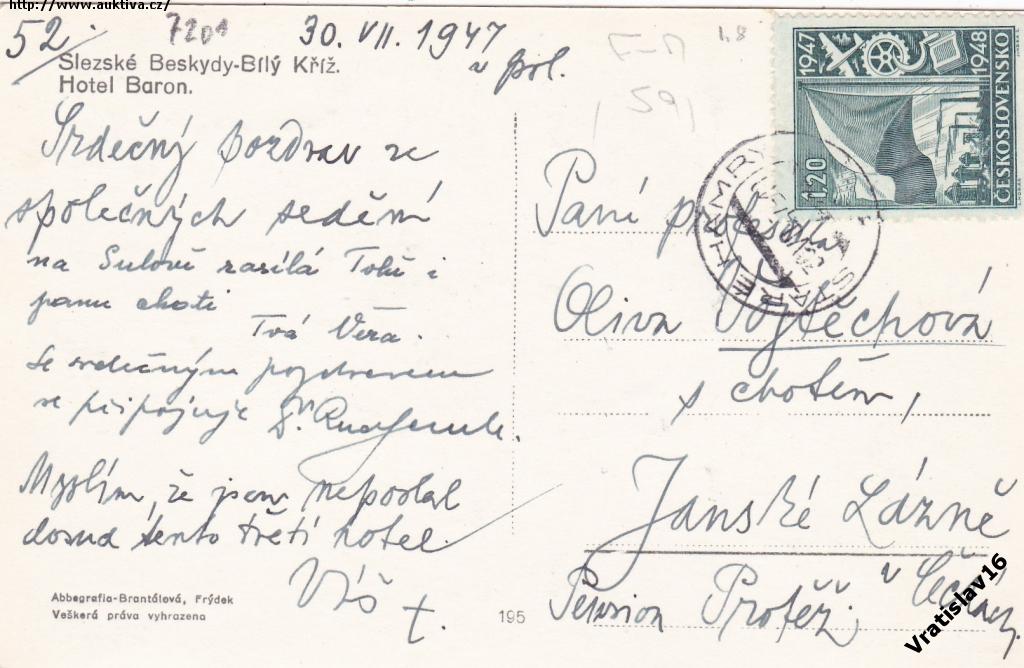 http://www.auktiva.cz/
52. 7201 30. VII. 1947
v pol.
Slezské Beskydy-Bílý Kříž.
Hotel Baron.
Srdečný pozdrav ze
společných sedění
na Sulově zasílá Tobě i
panu choti
Tvá Věra.
Se srdečným pozdravem
se připojuje Dr.
Myslím, že jsem neposlal
dosud tento třetí hotel.
Abbegrafia-Brantálová, Frýdek
Veškerá práva vyhrazena
195
1947 1948
ČESKOSLOVENSKO
1·20
STARÉ HAMRY
Paní
Oliva Vojtěchová
s chotěm,
Janské Lázně
Pension Protěž
Vratislav16